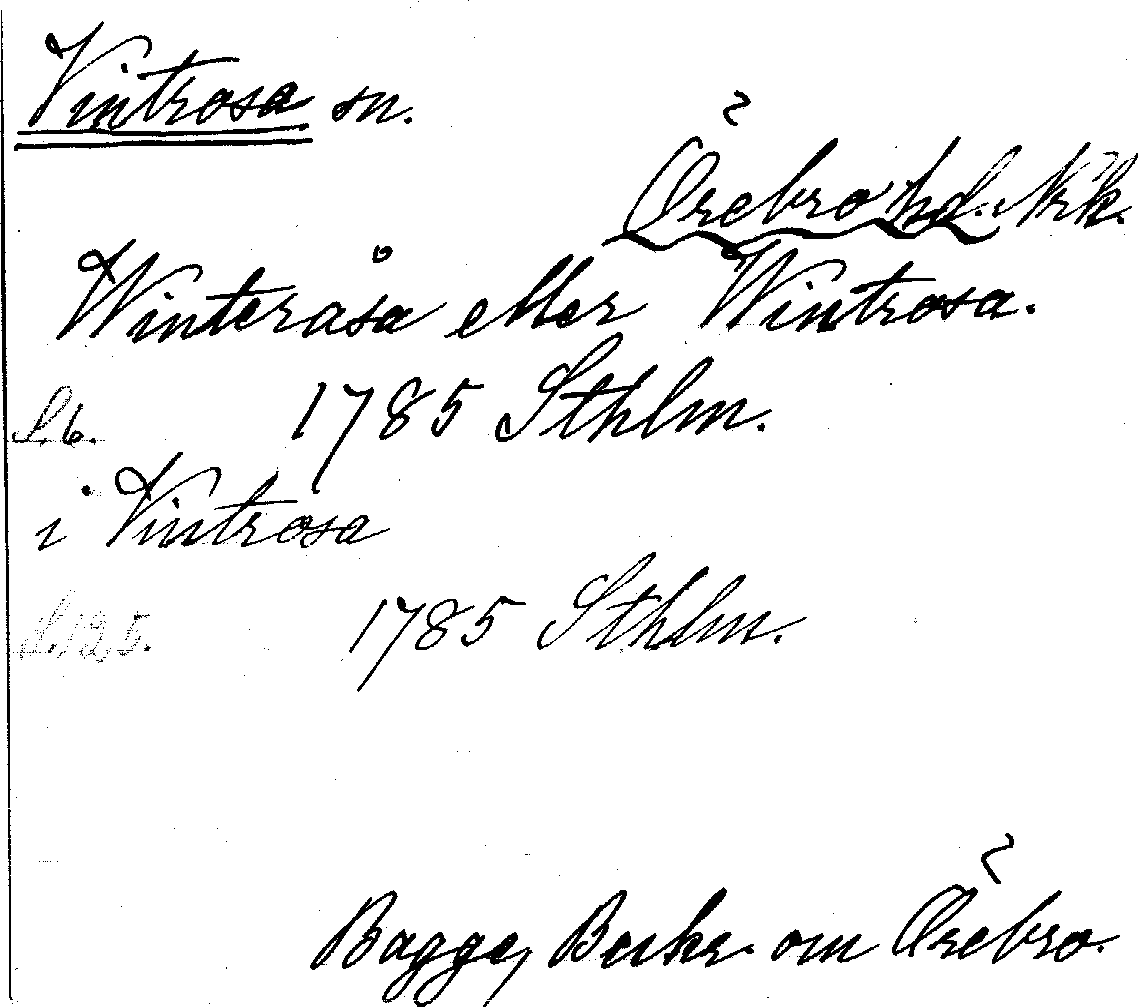 Vintrosa sn.
Örebro hd. Nrk.
Winteråsa eller Wintrosa.
S. 6. 1785 Sthlm.
i Vintrosa
S. 125. 1785 Sthlm.
Bagge, Beskr. om Örebro.